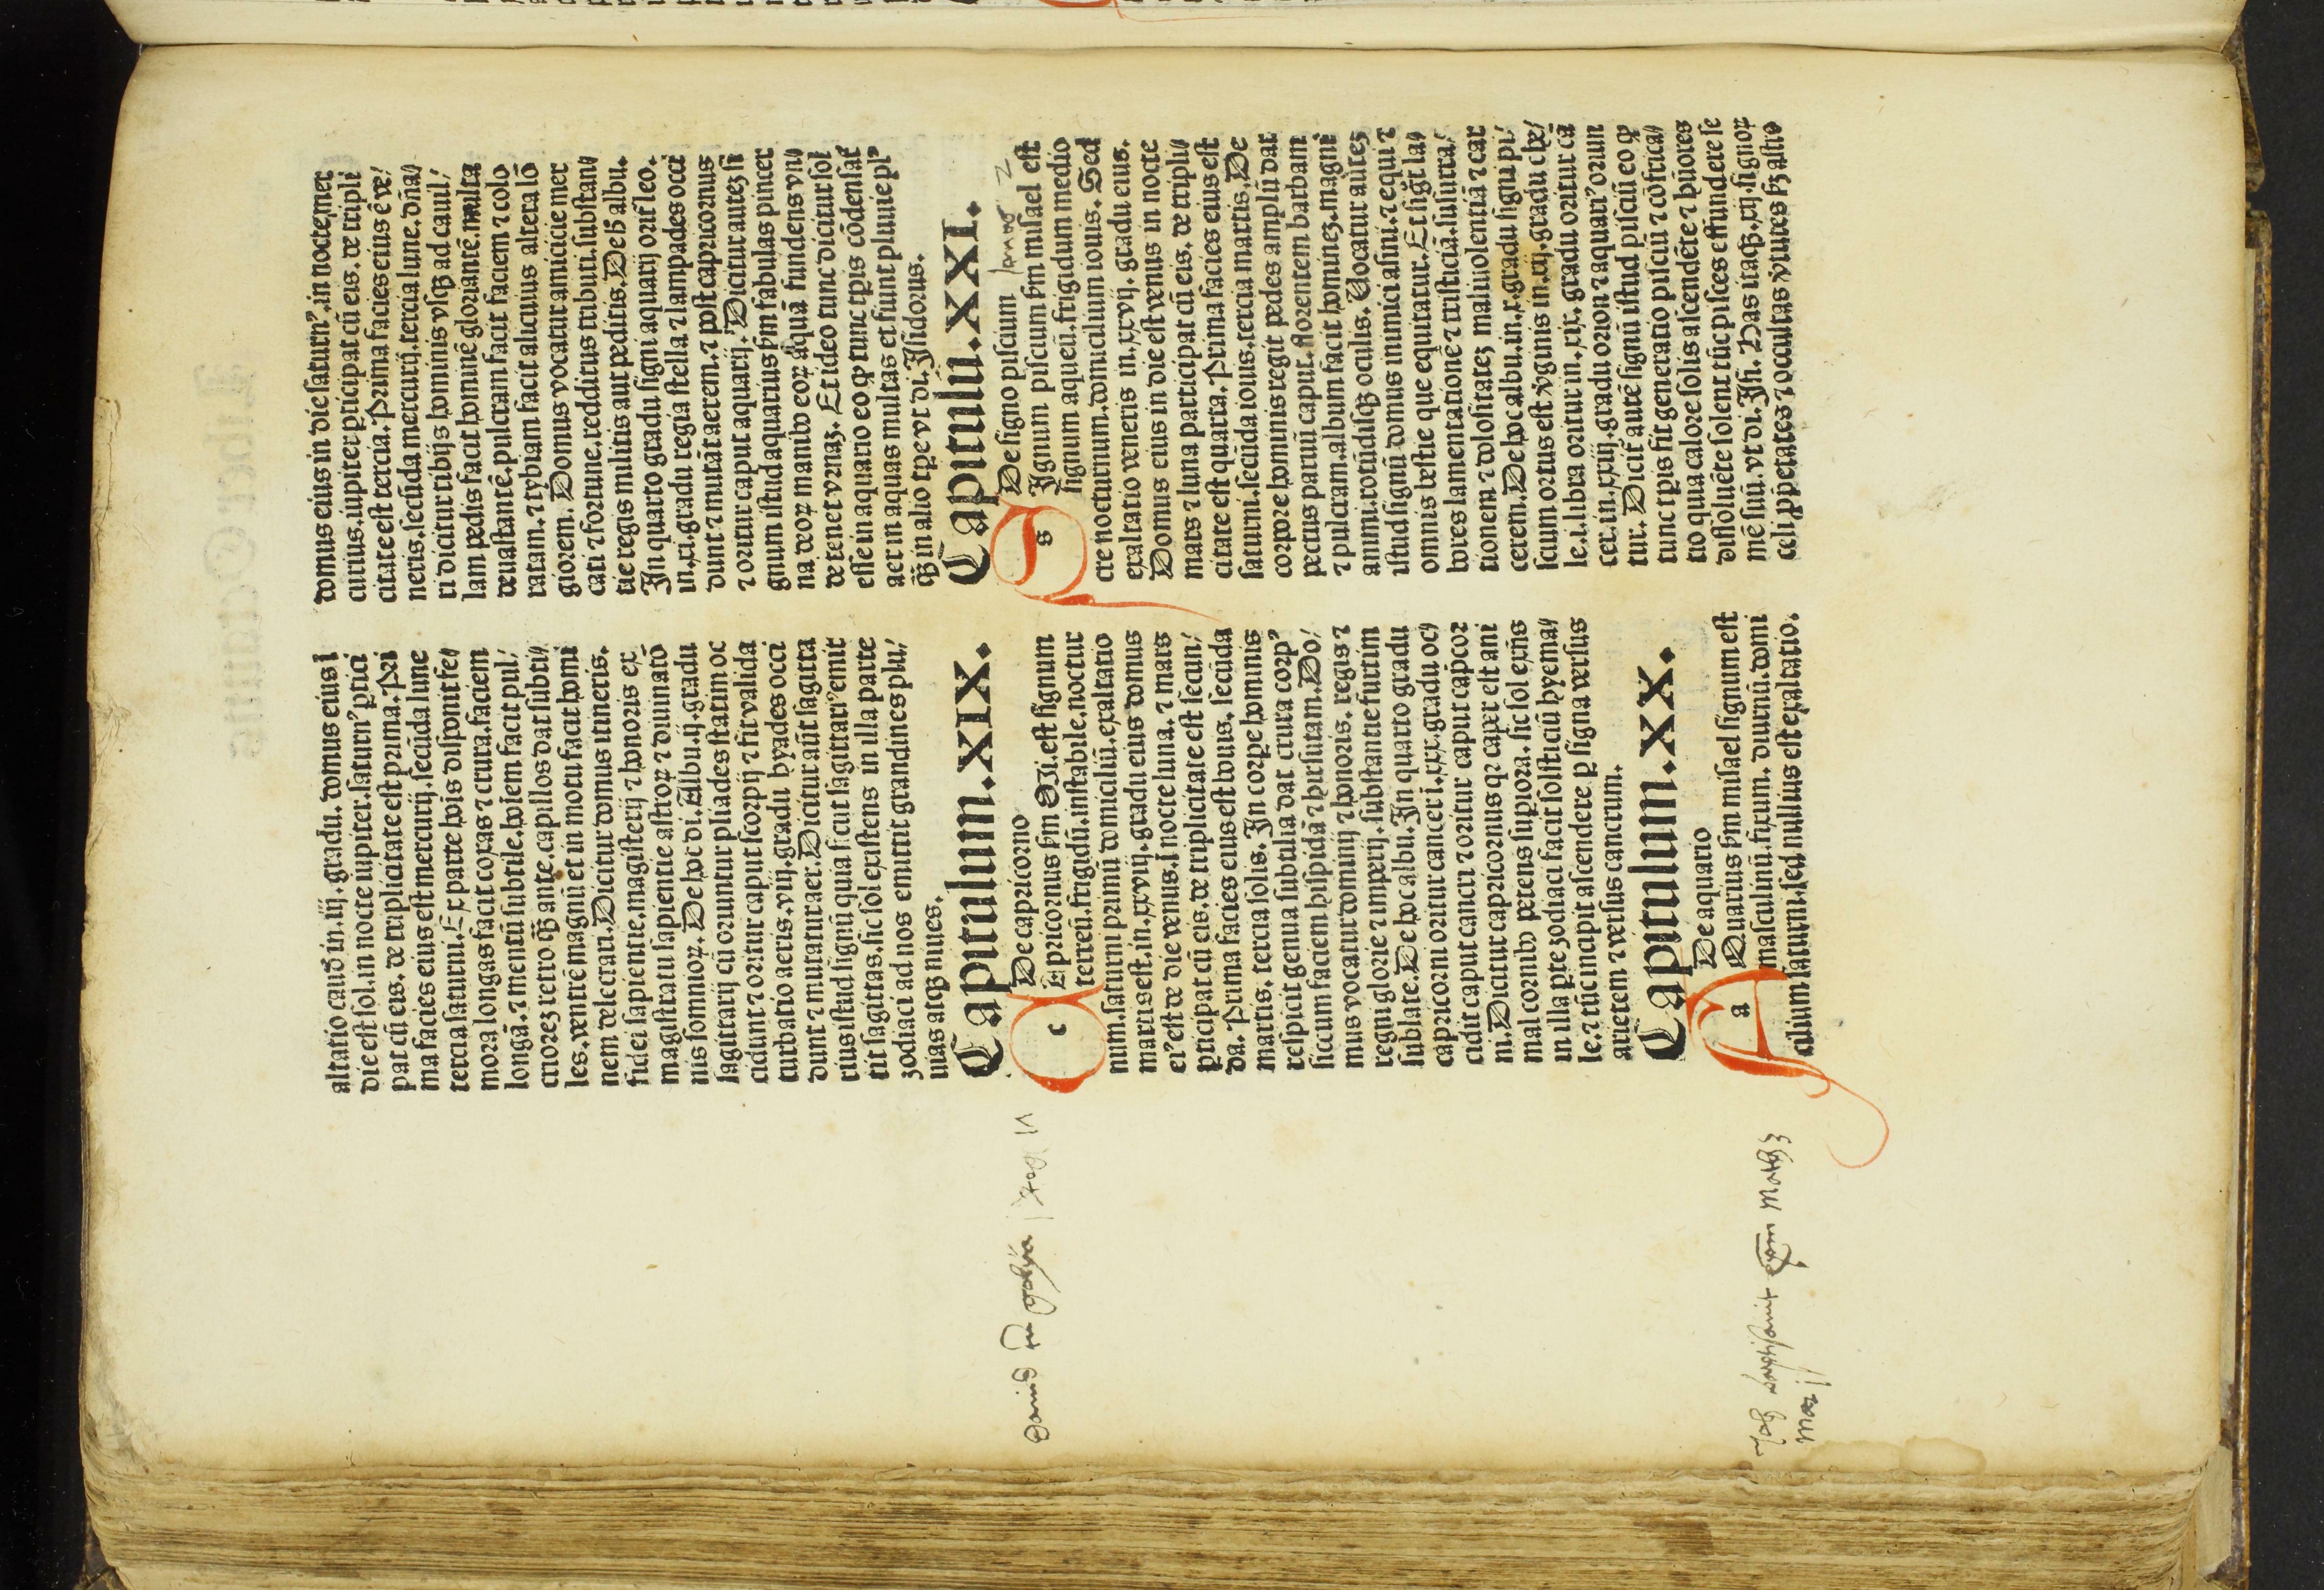 altatio caud̄ in .iij. gradu. domus eius ī
die est sol. in nocte iupiter. saturnꝰ ꝑtici
pat cū eis. de triplicitate est prima. Pri
ma facies eius est mercurij. secūda lune
tercia saturni. Ex parte hoīs disponit fe⸗
mora longas facit coxas ⁊ crura. faciem
longā. ⁊ mentū subtile. hoīem facit pul⸗
criorez retro qꝫ ante. capillos dat subti⸗
les. ventrē magnū et in motu facat homi
nem delectari. Dicitur domus itineris.
fidei sapientie. magisterij ⁊ honoris ex
magistratu sapientie astroꝝ ⁊ diuinatō
nis somnioꝝ. De hoc di. Albu. ij. gradu
sagittarij cū oriuntur pliades statim oc
cidunt ⁊ oritur caput scorpij ⁊ fit valida
turbatio aeris. viij. gradu hyades occi
dunt ⁊ mutatur aer. Dicitur aūt sagitta
rius istud signū quia sicut sagittariꝰ emit
tit sagittas. sic sol existens in illa parte
zodiaci ad nos emittit grandines plu⸗
uias atqꝫ niues.
Capitulum .XIX.
De capricorno
c Apricornus ẜm Mi. est signum
terreū. frigidū. instabile. noctur
num. saturni primū domiciliū. exaltatio
martis est. in. xxviij. gradu eius domus
eiꝰ est de die venus. ī nocte luna. ⁊ mars
ꝑticipat cū eis. de triplicitate est secun⸗
da. Prima facies eius est iouis. secūda
martis. tercia solis. In corꝑe hominis
respicit genua subtilia dat crura corpꝰ
siccum faciem hispidā ⁊ hirsutam. Do⸗
mus vocatur dominij ⁊ honoris. regis ⁊
regni glorie ⁊ imperij. substantie furtim
sublate. De hoc albu. In quarto gradu
capricorni oritur cancer ī. xxx. gradu oc⸗
cidit caput cancri ⁊ oritur caput capcor
ni. Dicitur capricornus qꝛ caper est ani
mal cornibō petens suꝑiora. sic sol exn̄s
in illa ꝑte zodiaci facit solsticiū hyema⸗
le. ⁊ tūc incipit ascendere ꝑ signa versus
arietem ⁊ versus cancrum.
Capitulum .XX.
De aquario
a Quarius ẜm misael signum est
masculinū. fixum. diurnū. domi
cilium saturni. sed nullius est exaltatio.
domus eius in die saturnꝰ. in nocte mer
curius. iupiter ꝑticipat cū eis. de tripli
citate est tercia. Prima facies eius ē ve⸗
neris. secūda mercurij. tercia lune. dn̄a⸗
ri dicitur tibijs hominis vsqꝫ ad cauil⸗
lam pedis facit hominē gloriantē. multa
deuastantē. pulcram facit faciem ⁊ colo
ratam. ⁊ tybiam facit alicuius altera lō
giorem. Domus vocatur amicicie mer
cati ⁊ fortune. redditus tributi. substan⸗
tie regis militis aut peditis. De h̄ albu.
In quarto gradu signi aquarij orit̄ leo.
in. xi. gradu regia stella ⁊ lampades occi
dunt ⁊ mutāt aerem. ⁊ post capricornus
⁊ oritur caput aquarij. Dicitur autez si
gnum istud aquarius ẜm fabulas pincer
na deoꝝ manibō eoꝝ aquā fundens vn⸗
de tenet vrnaz. Et ideo tunc dicitur sol
esse in aquario eo qꝫ tunc tꝑis cōdensat̄
aer in aquas multas et fiunt pluuie plꝰ
qꝫ in alio tꝑe vt di. Isidorus.
Capitulū .XXI.
De signo piscium
s Ignum piscium ẜm misael est
signum aqueū. frigidum medio
cre nocturnum. domicilium iouis. Sed
exaltatio veneris in. xxvij. gradu eius.
Domus eius in die est venus in nocte
mars ⁊ luna participat cū eis. de tripli⸗
citate est quarta. Prima facies eius est
saturni. secūda iouis. tercia martis. De
corpore hominis regit pedes amplū dat
pectus paruū caput. florentem barbam
⁊ pulcram. album facit hominez. magni
animi. rotūdisqꝫ oculis. Uocatur autez
istud signū domus inimici asini. ⁊ equi ⁊
omnis bestie que equitatur. Et sigt̄ la⸗
bores lamentationē ⁊ tristiciā. susurra⸗
tionem ⁊ dolositatez maliuolentiā ⁊ car
cerem. De hoc albu. in. x. gradu signi pi⸗
scium ortus est v̓ginis in. xij. gradu che⸗
le. i. libra oritur in. xix. gradu oritur cā
cer. in. xxiij. gradu orion ⁊ aquariꝰ oriun
tur. Dicit̄ autē signū istud pisciū eo qꝫ
tunc tꝑis fit generatio pisciū ⁊ cōfrica⸗
tio quia calore solis ascendēte ⁊ hūores
dissoluēte solent tūc pisces effundere se
mē suū. vt di. Isi. Has itaqꝫ. xij. signoꝝ
celi ꝓprietates ⁊ occultas v̓tutes ẜꝫ astro